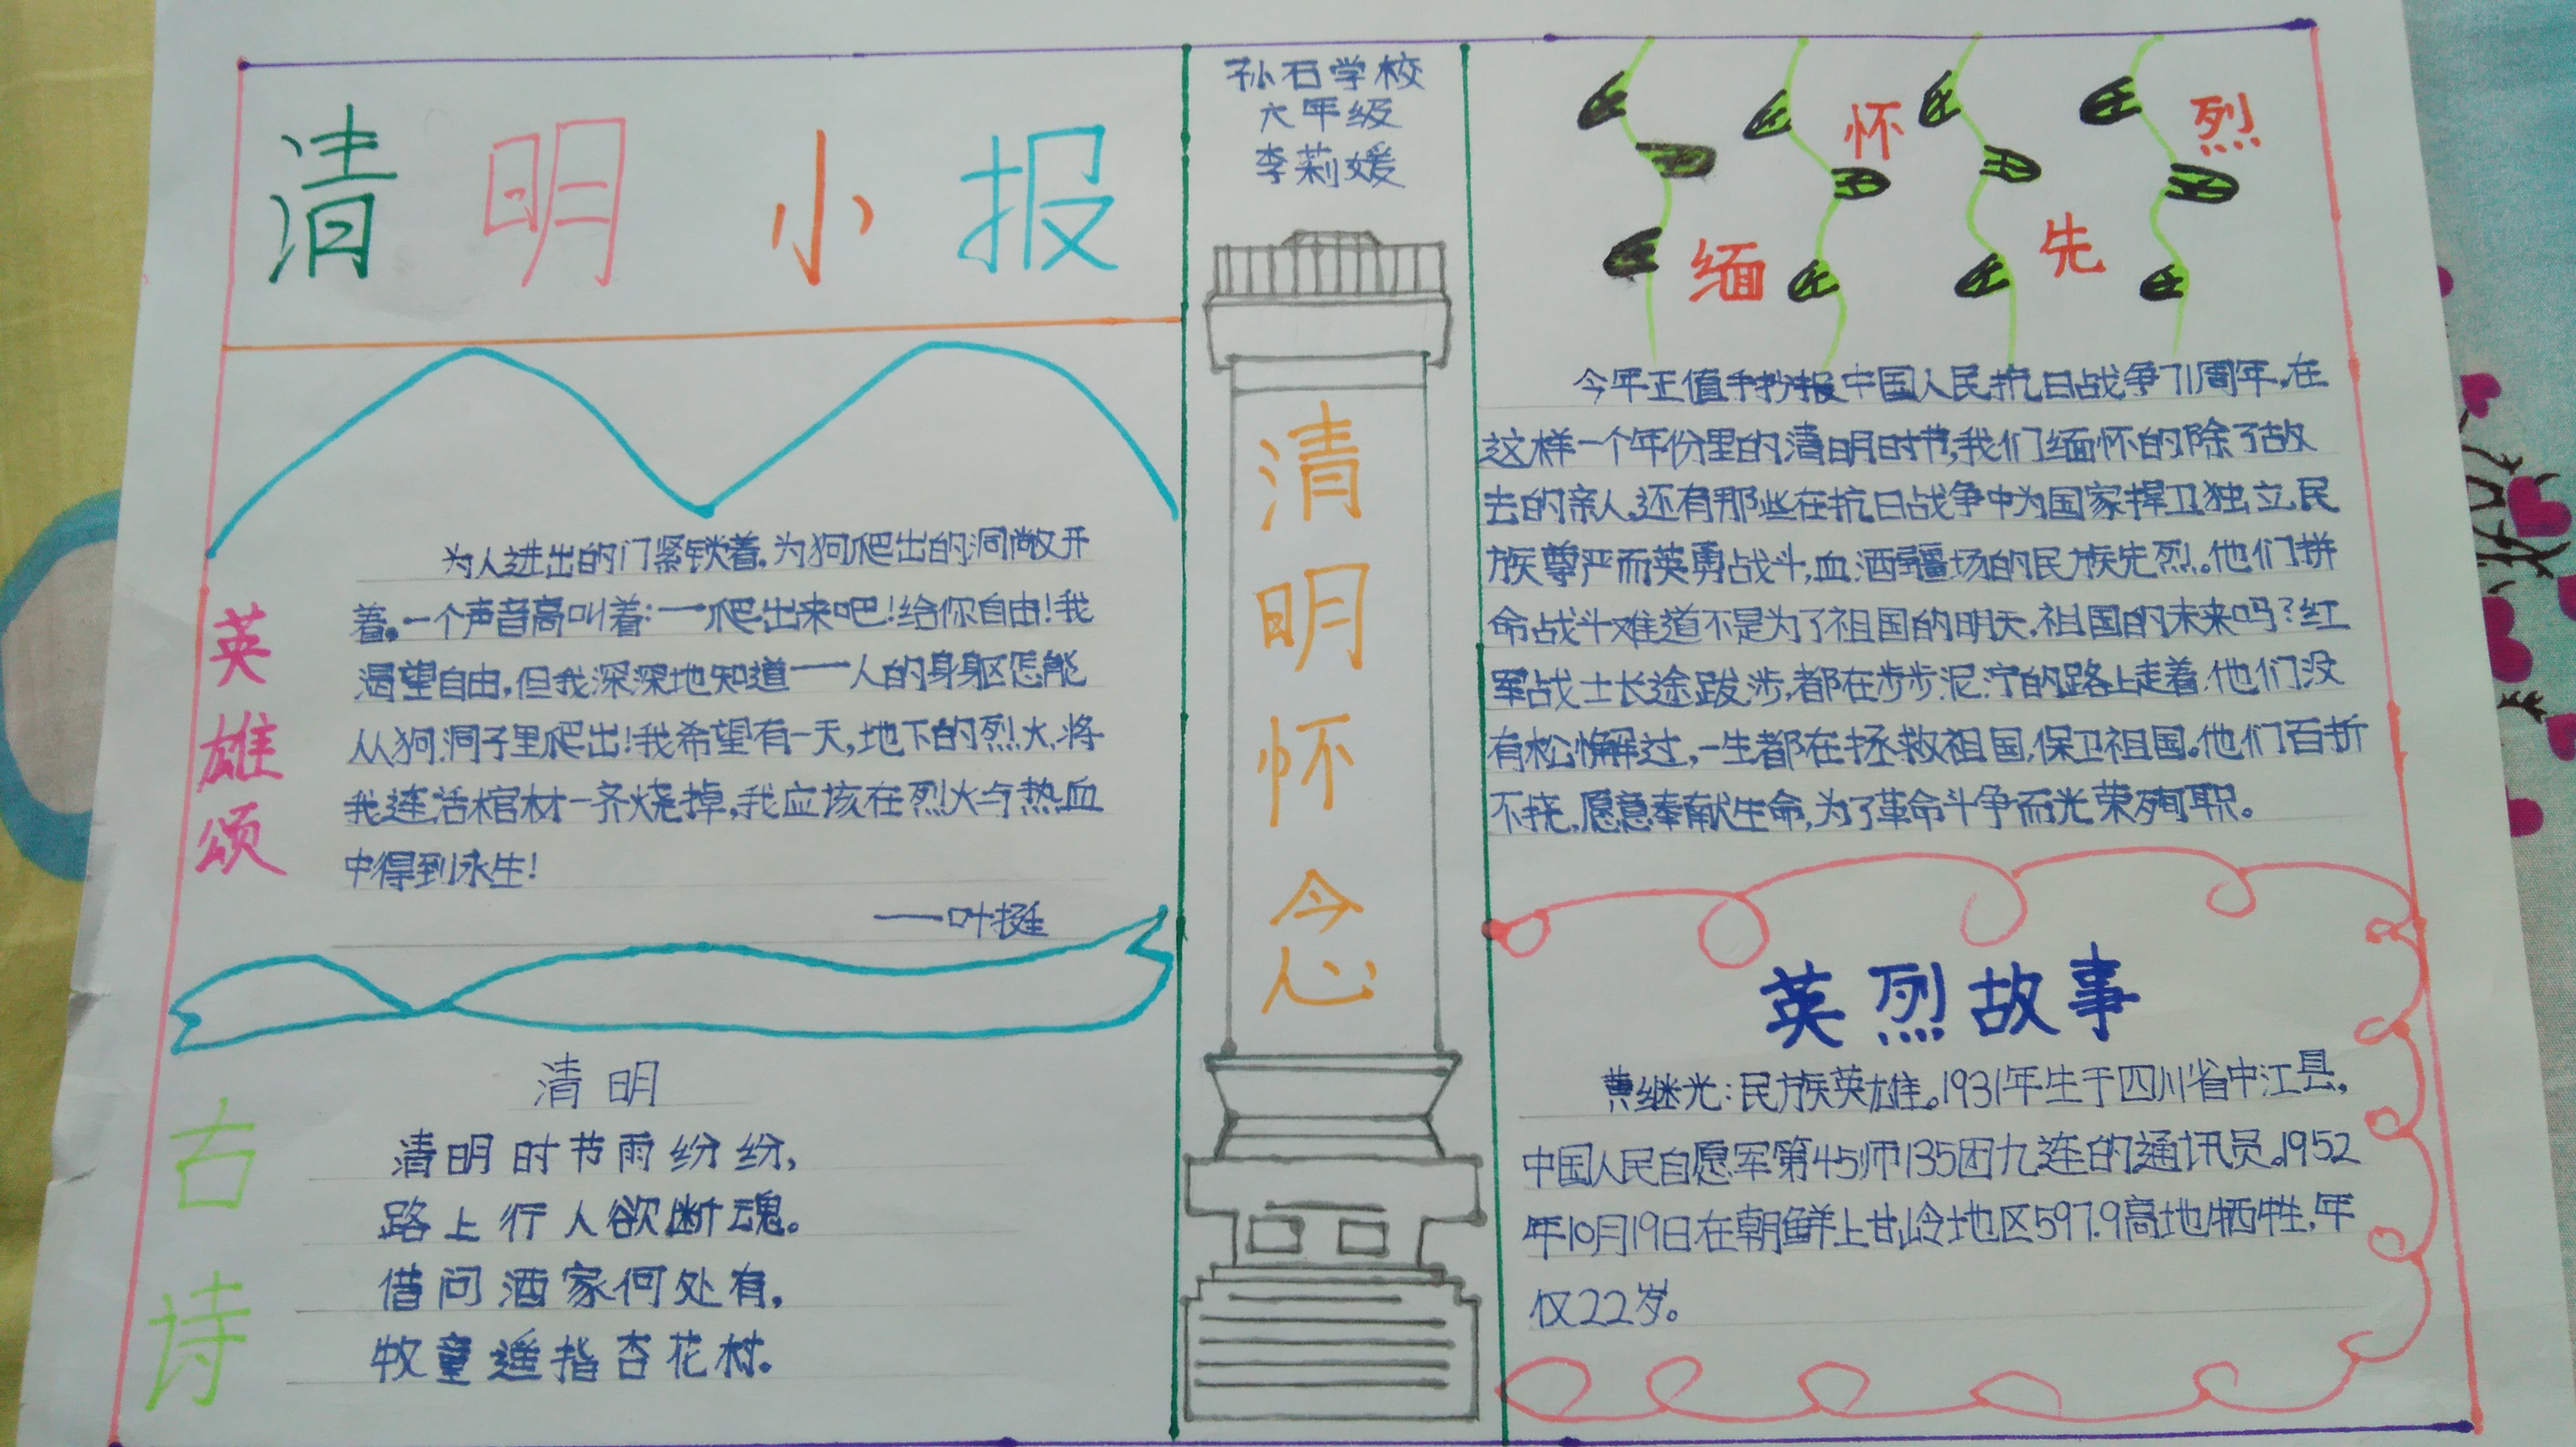 清明小报
英雄颂
为人进出的门紧锁着。为狗爬出的洞敞开
着。一个声音高叫着:一爬出来吧!给你自由!我
渴望自由,但我深深地知道——人的身躯怎能
从狗洞子里爬出!我希望有一天,地下的烈火,将
我连活棺材一齐烧掉,我应该在烈火与热血
中得到永生!
——叶挺
古诗
清明
清明时节雨纷纷,
路上行人欲断魂。
借问酒家何处有,
牧童遥指杏花村。
孙石学校
六年级
李莉媛
清明怀念
缅怀先烈
今年正值手抄报中国人民抗日战争71周年,在
这样一个年份里的清明时节,我们缅怀的除了故
去的亲人,还有那些在抗日战争中为国家捍卫独立、民
族尊严而英勇战斗,血洒疆场的民族先烈。他们拼
命战斗难道不是为了祖国的明天,祖国的未来吗?红
军战士长途跋涉,都在步步泥泞的路上走着,他们没
有松懈过,一生都在拯救祖国,保卫祖国。他们百折
不挠,愿意奉献生命,为了革命斗争而光荣殉职。
英烈故事
黄继光:民族英雄。1931年生于四川省中江县,
中国人民自愿军第45师135团九连的通讯员。1952
年10月19日在朝鲜上甘岭地区597.9高地牺牲,年
仅22岁。